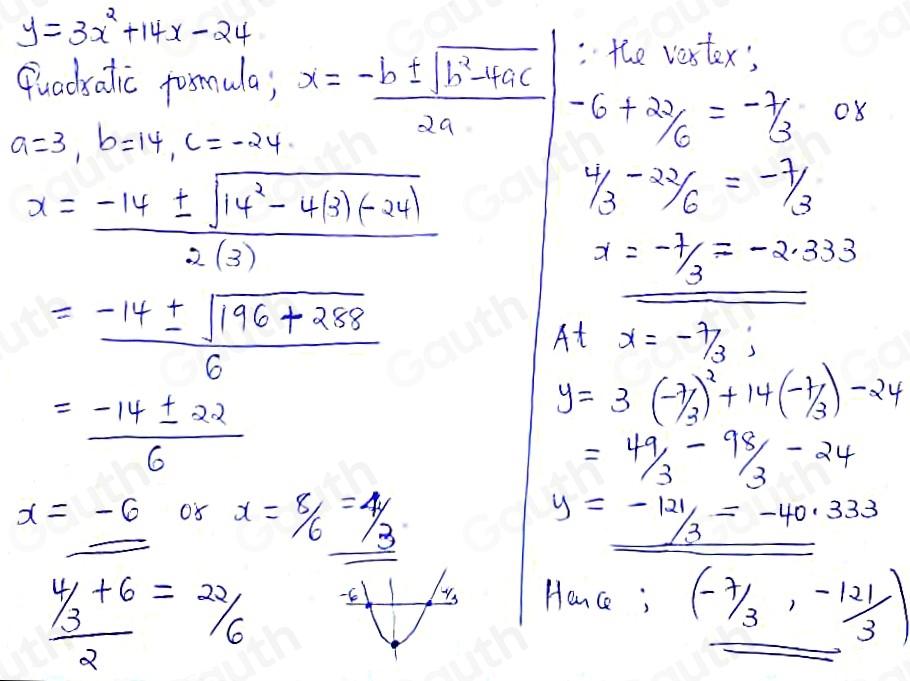 y = 3x² + 14x - 24.
Quadratic formula; x = (-b ± √(b² - 4ac)) / 2a
a = 3, b = 14, c = -24.
x = (-14 ± √(14² - 4(3)(-24))) / 2(3)
= (-14 ± √(196 + 288)) / 6
= (-14 ± 22) / 6
x = -6 or x = 8/6 = 4/3
(4/3 + 6) / 2 = 22/6
-6 4/3
∴ the vertex;
-6 + 22/6 = -7/3 or
4/3 - 22/6 = -7/3
x = -7/3 = -2.333
At x = -7/3;
y = 3(-7/3)² + 14(-7/3) - 24
= 49/3 - 98/3 - 24
y = -121/3 = -40.333
Hence; (-7/3, -121/3)
Gauth